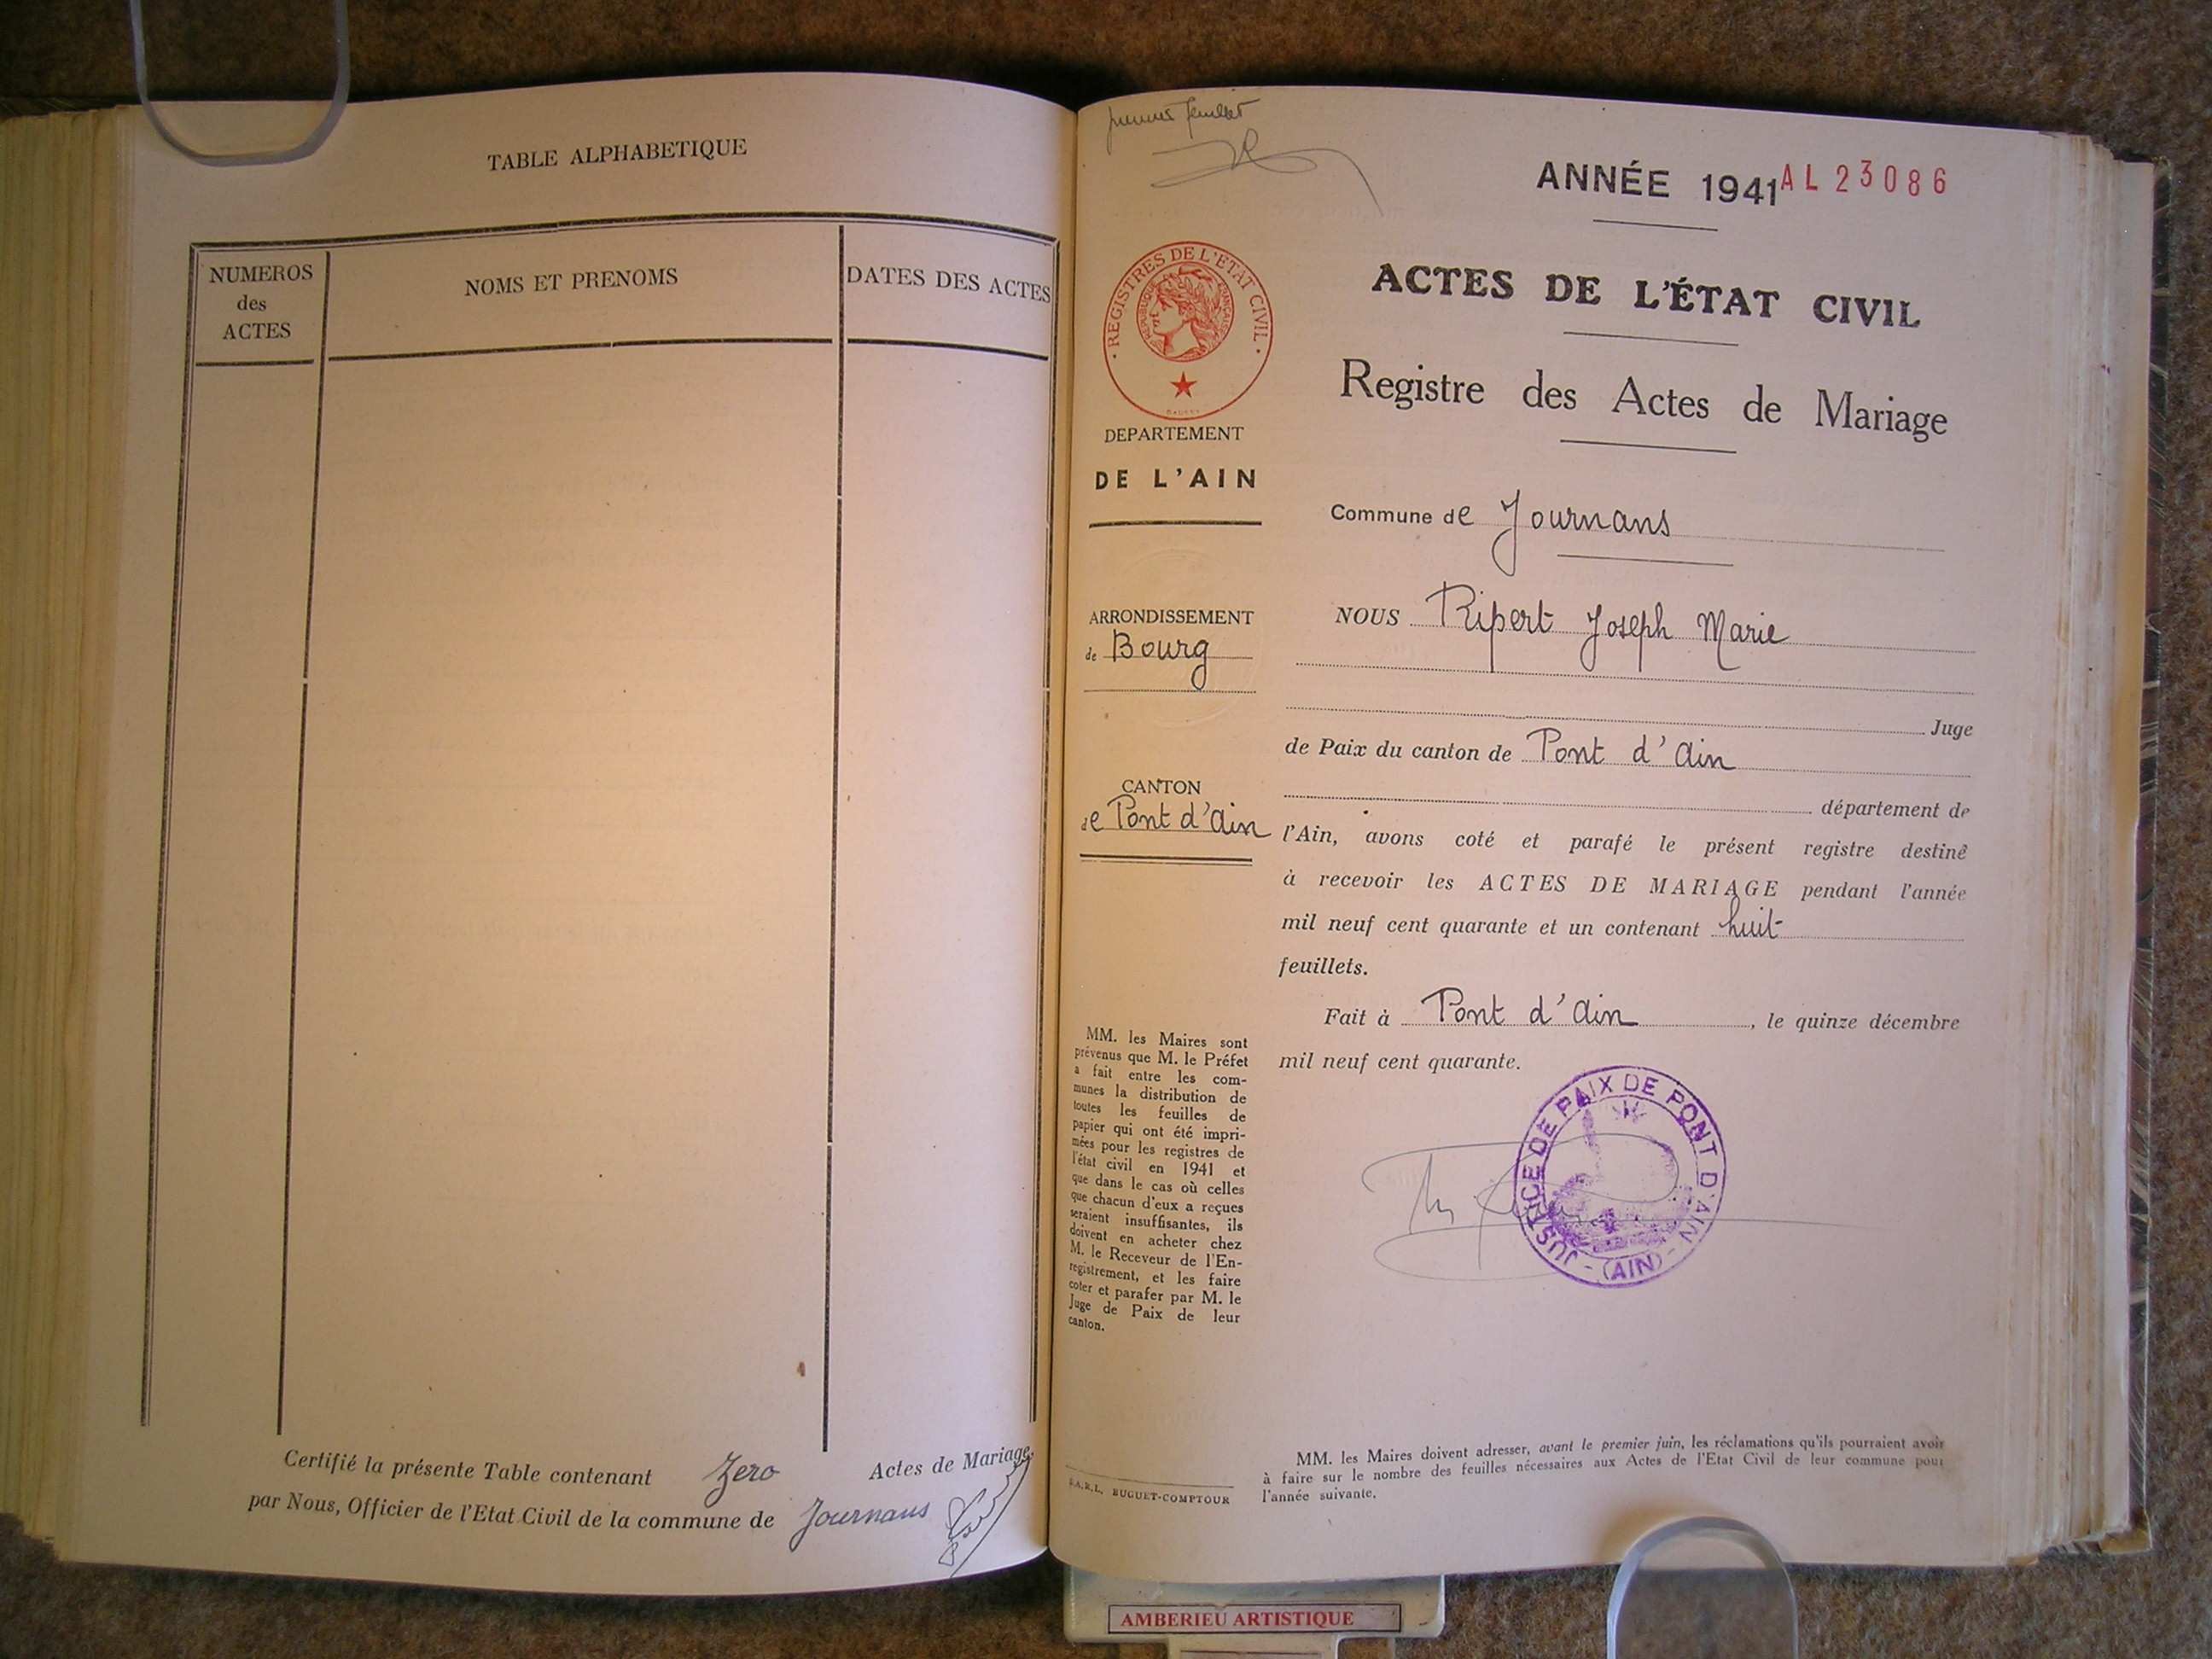 TABLE ALPHABETIQUE
NUMEROS
des
ACTES
NOMS ET PRENOMS
DATES DES ACTES
Certifié la présente Table contenant Zero Actes de Mariage,
par Nous, Officier de l'Etat Civil de la commune de Journans
premier feuillet
ANNÉE 1941 AL 23086
REGISTRES DE L'ETAT CIVIL
REPUBLIQUE FRANÇAISE
DEPARTEMENT
DE L'AIN
ARRONDISSEMENT
de Bourg
CANTON
de Pont d'Ain
MM. les Maires sont
prévenus que M. le Préfet
a fait entre les com-
munes la distribution de
toutes les feuilles de
papier qui ont été impri-
mées pour les registres de
l'état civil en 1941 et
que dans le cas où celles
que chacun d'eux a reçues
seraient insuffisantes, ils
doivent en acheter chez
M. le Receveur de l'En-
registrement, et les faire
coter et parafer par M. le
Juge de Paix de leur
canton.
S.A.R.L. BUGUET-COMPTOUR
ACTES DE L'ÉTAT CIVIL
Registre des Actes de Mariage
Commune de Journans
NOUS Ripert Joseph Marie
Juge
de Paix du canton de Pont d'Ain
département de
l'Ain, avons coté et parafé le présent registre destiné
à recevoir les ACTES DE MARIAGE pendant l'année
mil neuf cent quarante et un contenant huit
feuillets.
Fait à Pont d'Ain, le quinze décembre
mil neuf cent quarante.
JUSTICE DE PAIX DE PONT D'AIN - (AIN) -
MM. les Maires doivent adresser, avant le premier juin, les réclamations qu'ils pourraient avoir
à faire sur le nombre des feuilles nécessaires aux Actes de l'Etat Civil de leur commune pour
l'année suivante.
AMBERIEU ARTISTIQUE